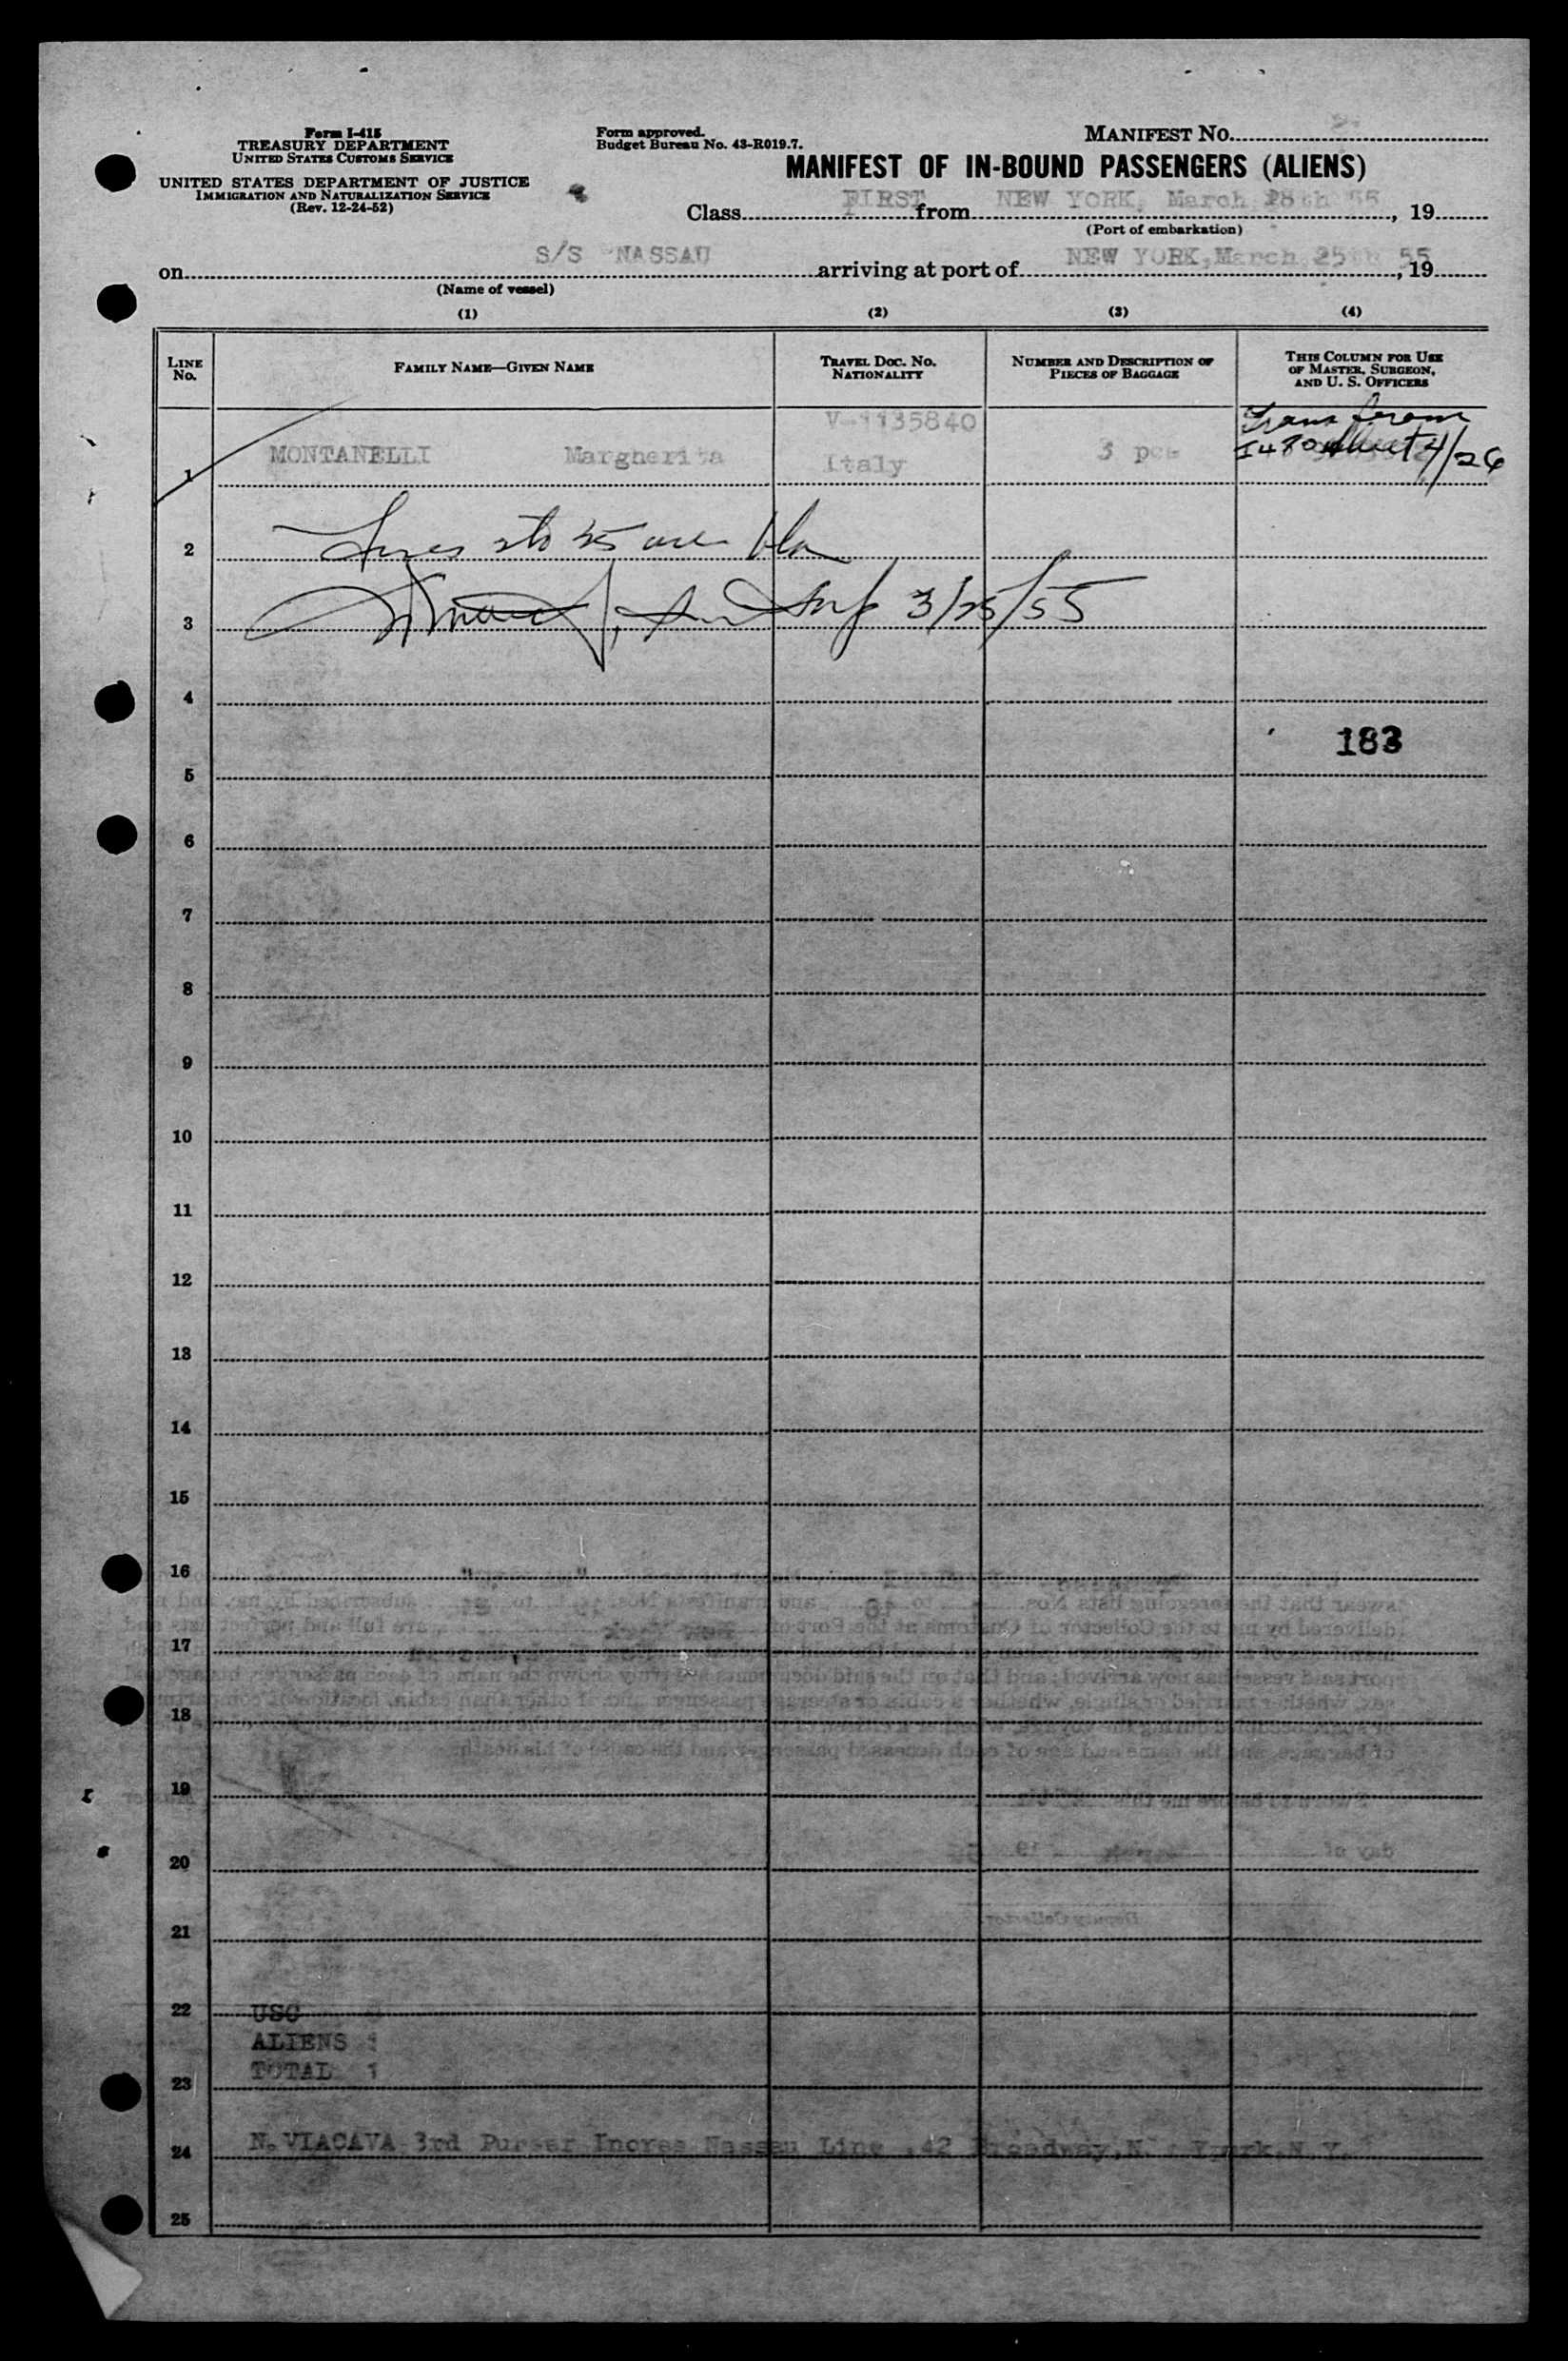 Form I-415
TREASURY DEPARTMENT
UNITED STATES CUSTOMS SERVICE
UNITED STATES DEPARTMENT OF JUSTICE
IMMIGRATION AND NATURALIZATION SERVICE
(Rev. 12-24-52)
Form approved.
Budget Bureau No. 43-R019.7.
MANIFEST NO.
MANIFEST OF IN-BOUND PASSENGERS (ALIENS)
Class FIRST from NEW YORK, March 18th 55, 19
(Port of embarkation)
on S/S NASSAU arriving at port of NEW YORK, March 25th 55, 19
(Name of vessel)
(1) (2) (3) (4)
LINE NO.
FAMILY NAME—GIVEN NAME
TRAVEL DOC. NO. NATIONALITY
NUMBER AND DESCRIPTION OF PIECES OF BAGGAGE
THIS COLUMN FOR USE OF MASTER, SURGEON, AND U. S. OFFICERS
V-1135840
1 MONTANELLI Margherita Italy 3 pcs
4/26
2 Lines 2 to 25 are
3 3/25/55
4
183
5
6
7
8
9
10
11
12
13
14
15
16
17
18
19
20
21
22 USC
ALIENS 1
TOTAL 1
23
24 N. VIACAVA 3rd Purser Incres Nassau Line .42 Broadway, N. York, N.Y.
25